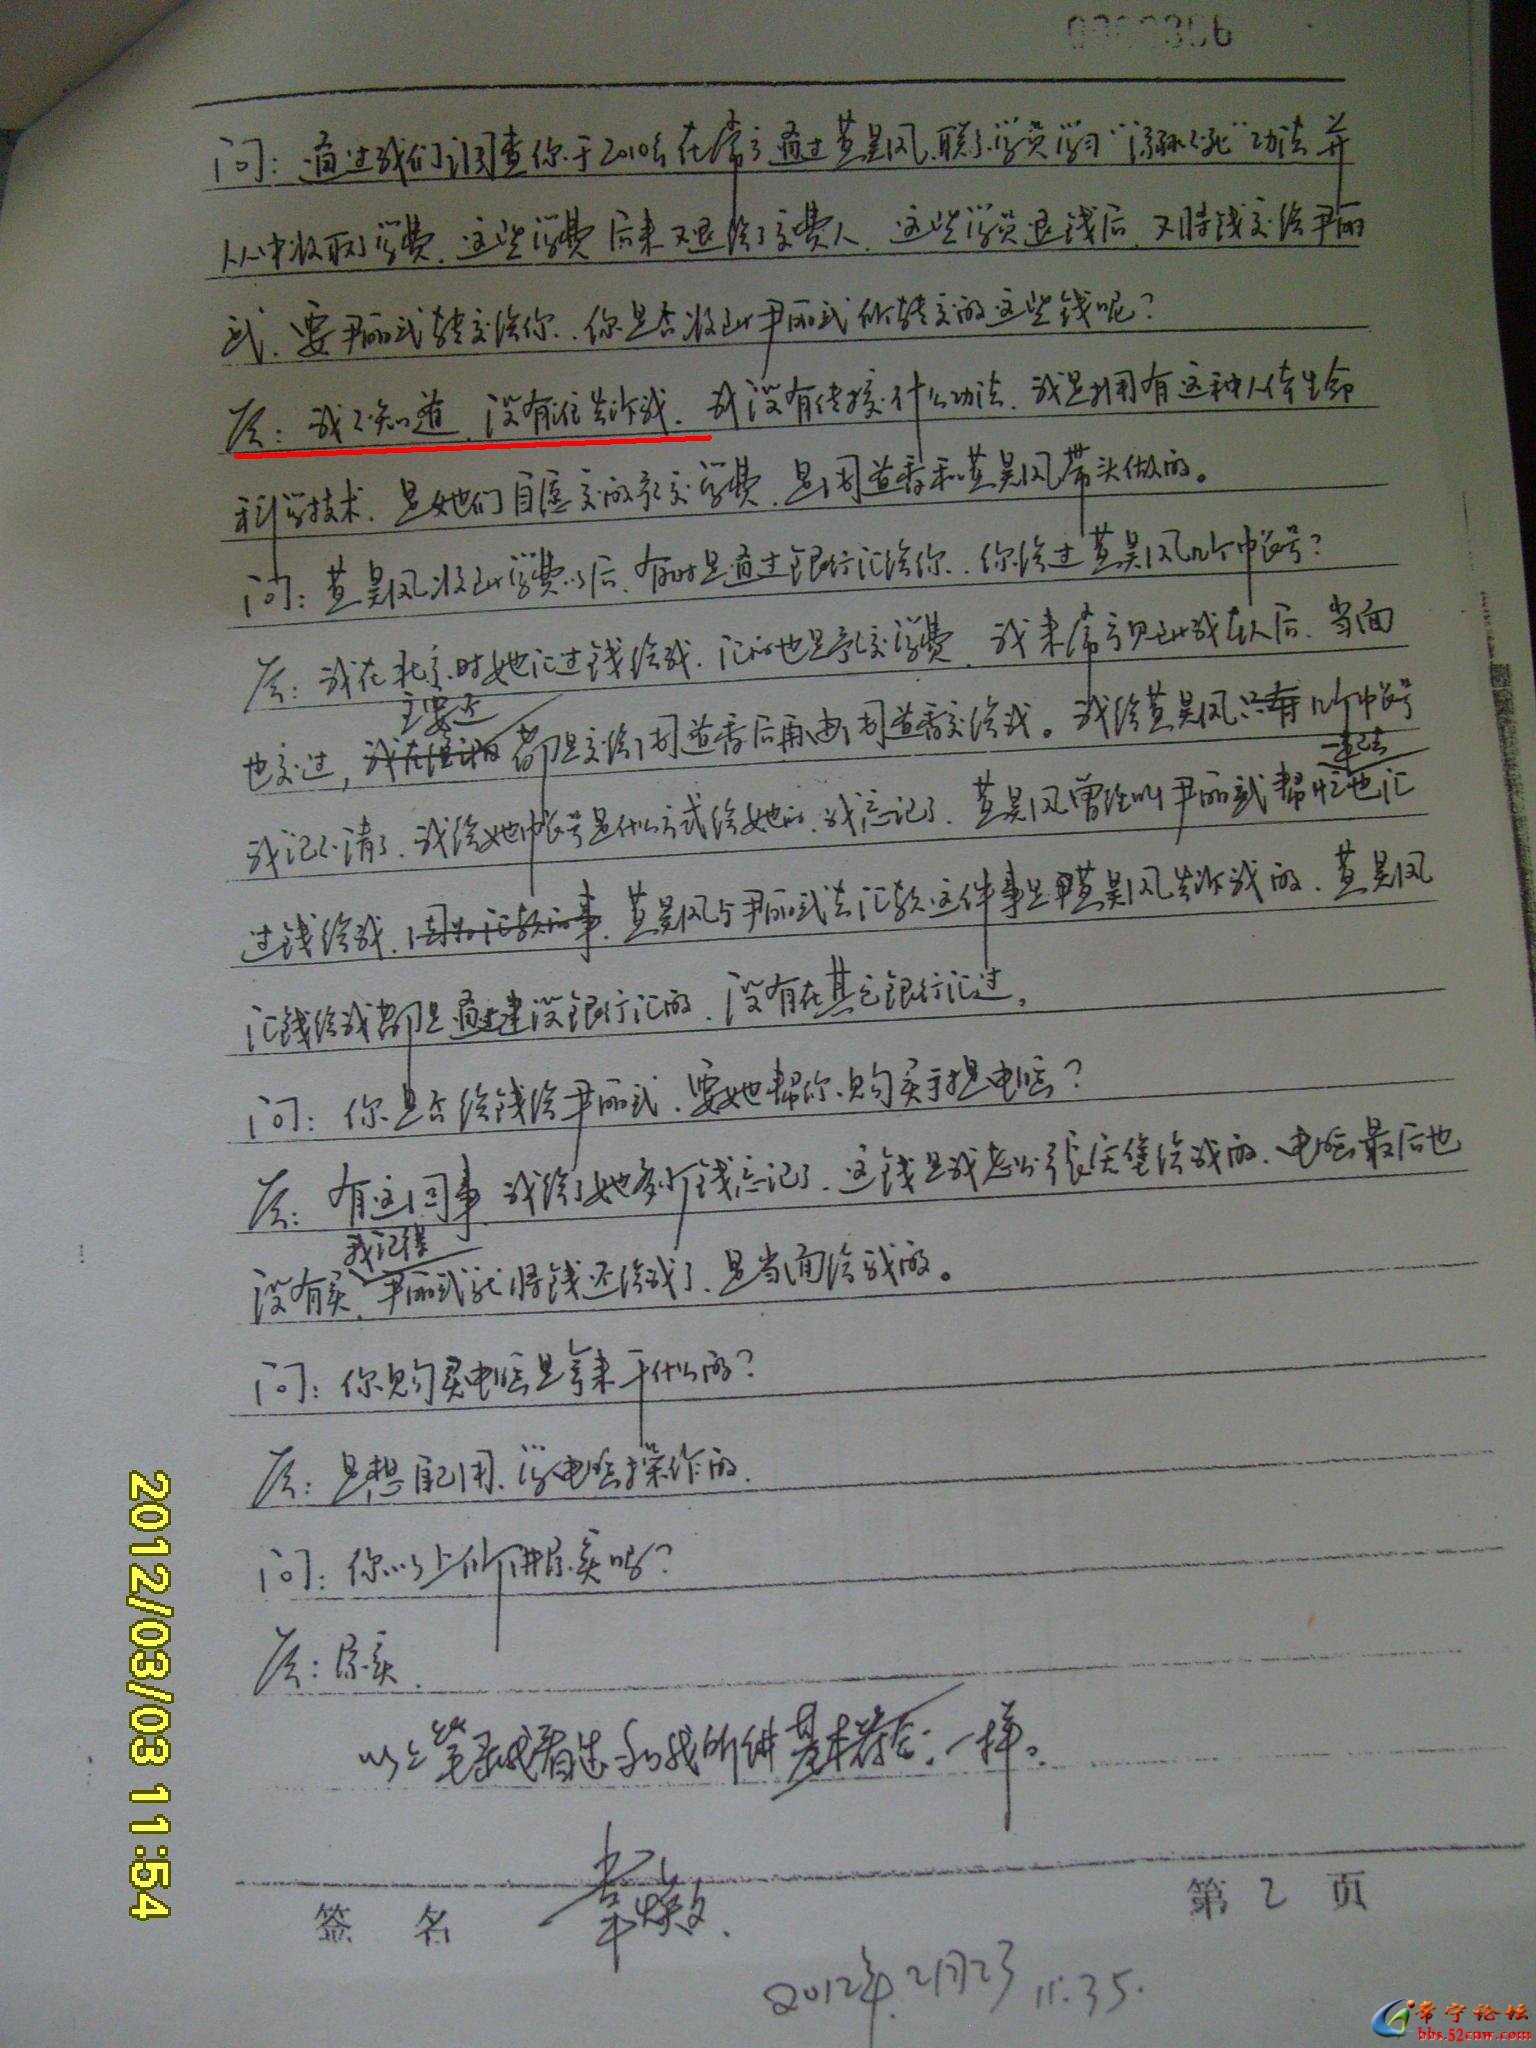 问：通过我们调查你于2010年在常宁通过黄昊风联系学员学习“ 功法并
从中收取了学费，这些学费后来又退给了交费人，这些学员退钱后，又将钱交给尹丽
武，要尹丽武转交给你，你是否收到尹丽武所转交的这些钱呢？
答：我不知道，没有谁告诉我，我没有传授什么功法，我是拥有这种人体生命
科学技术，是她们自愿交的预交学费，是周道香和黄昊风带头做的。
问：黄昊风收到学费以后，有时是通过银行汇给你，你给过黄昊风几个帐号？
答：我在北京时她汇过钱给我，汇的也是预交学费，我来常宁见到我本人后，当面
主要还
也交过， 都是交给周道香后再由周道香交给我。我给黄昊风 几个帐号
我记不清了，我给她帐号是什么方式给她的，我忘记了，黄昊风曾经叫尹丽武帮忙也汇
过钱给我， 黄昊风与尹丽武去汇款这件事是黄昊风告诉我的，黄昊风
汇钱给我都是通过建设银行汇的，没有在其它银行汇过。
问：你是否给钱给尹丽武，要她帮你购买手提电脑？
答：有这回事，我给了她多少钱忘记了，这钱是我老公张 给我的，电脑最后也
我记得
没有买，尹丽武就将钱还给我了，是当面给我的。
问：你购买电脑是拿来干什么的？
答：是想自己用，学电脑操作的。
问：你以上所讲属实吗？
答：属实。
以上笔录我看过和我所讲基本符合：一样。
签 名
第 2 页
2012年2月23 11:35.
2012/03/03 11:54
常宁论坛
bbs.52cnw.com